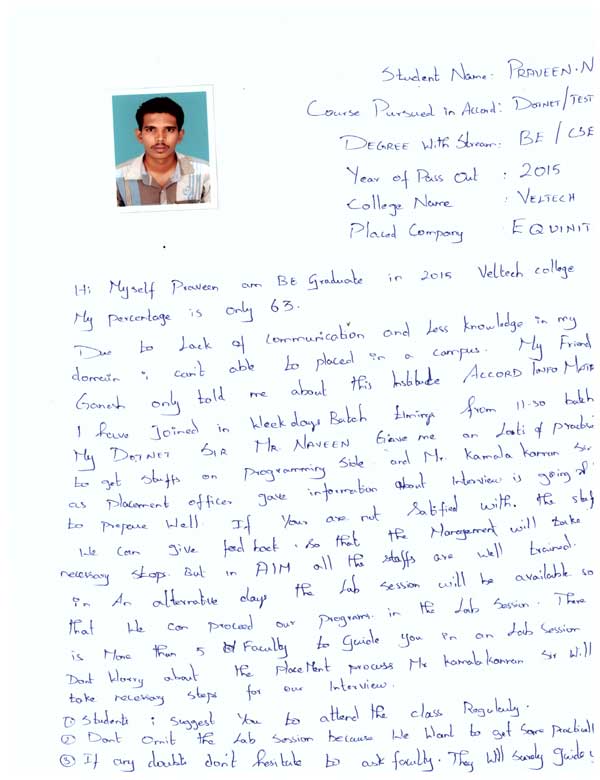 Student Name: PRAVEEN.N
Course Pursued in Accord: DOTNET/TEST
DEGREE With Stream: BE / CSE
Year of Pass Out : 2015
College Name : VELTECH
Placed Company EQUINIT
Hi Myself Praveen am BE Graduate in 2015 Veltech college
My percentage is only 63.
Due to Lack of Communication and Less knowledge in my
domain i can't able to placed in a campus. My Friend
Ganesh only told me about this Institute ACCORD INFO MATR
I have joined in Weekdays Batch timings from 11-30 batch
My DOTNET SIR MR. NAVEEN Gave me an Lots of practi
to get Stuffs on Programming Side and Mr. Kamala kannan Sir
as Placement officer gave information about Interview is going
to prepare Well. If You are not Satified with the staf
We can give feed back. So that the Management will take
necessary Steps. But in AIM all the staffs are well trained.
in An alternative days the Lab Session will be available so
that We can proceed our programs in the Lab Session. There
is More than 5 Faculty to Guide you in an Lab Session
Dont Worry about the PlaceMent process Mr Kamalakannan Sir Will
take necessary steps for our Interview.
① Students i Suggest You to attend the class Regularly.
② Dont Omit the Lab Session because We Want to get Some Practicall
③ If any doubts don't hesitate to ask faculty. They Will Surely guide